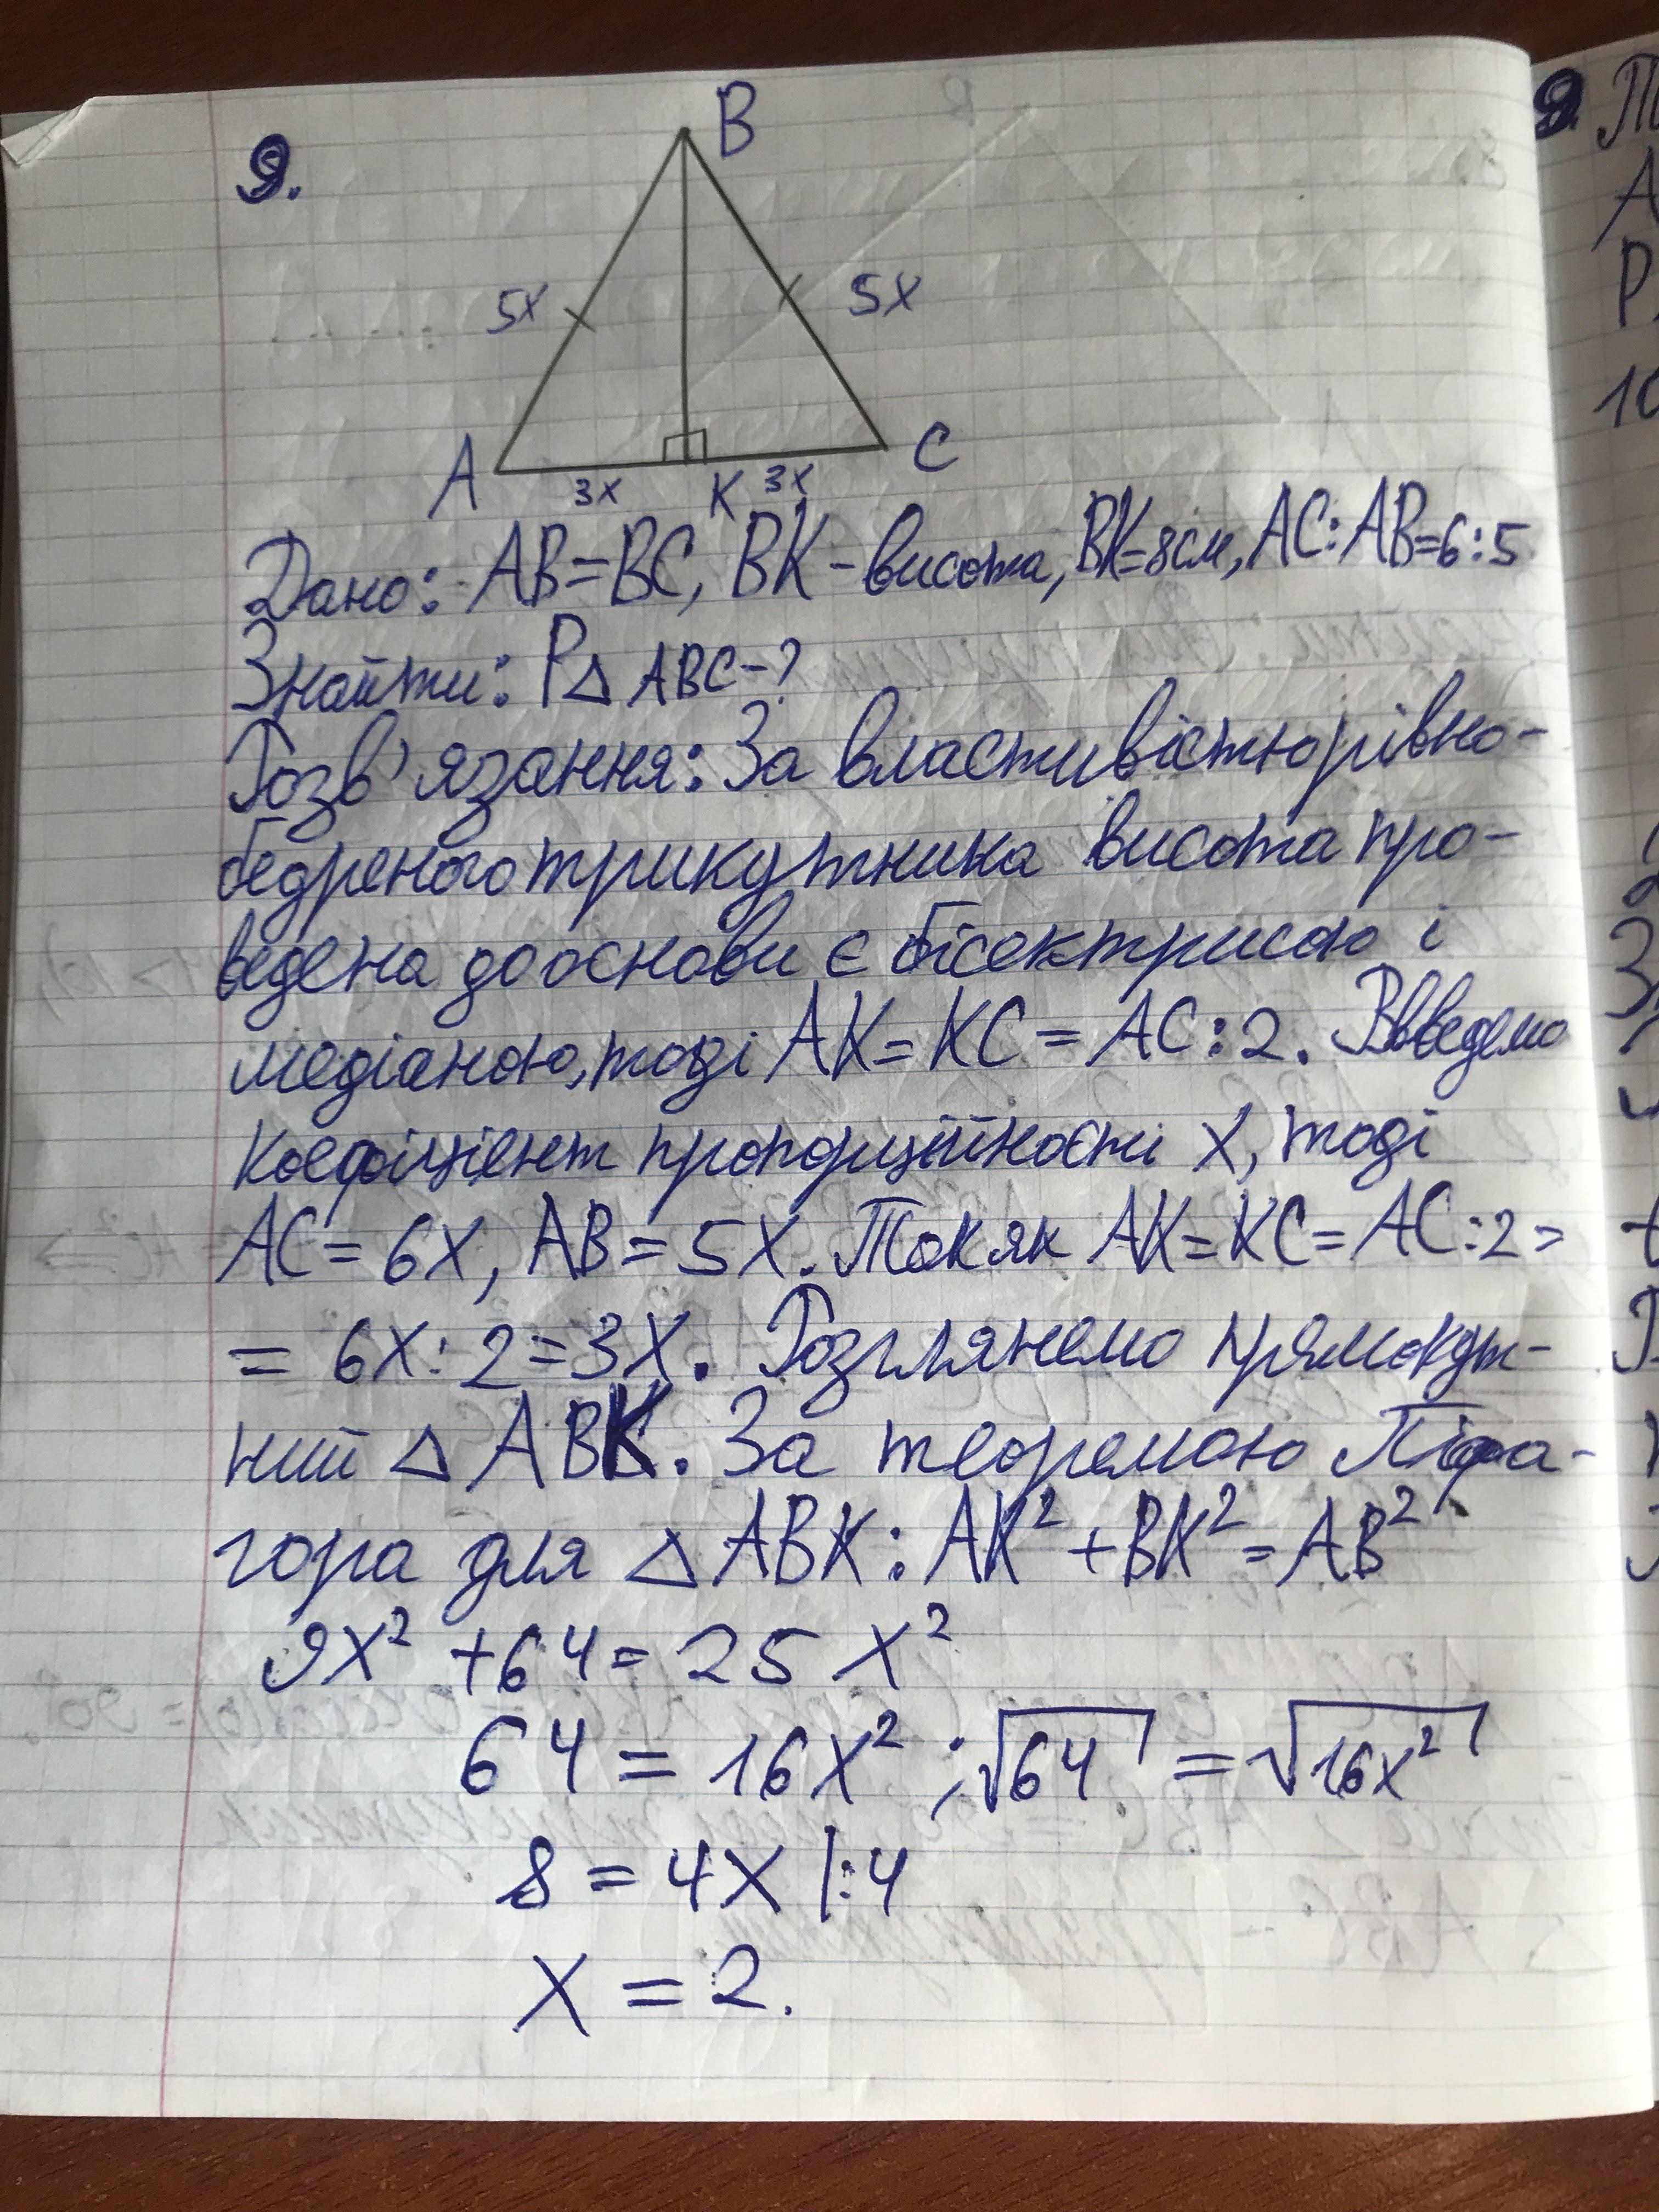 9.
B
5x
5x
A
C
3x
K
3x
Дано: AB=BC, BK - висота, BK=8см, AC:AB=6:5
Знайти: P△ABC-?
Розв'язання: За властивістю рівно-
бедреного трикутника висота про-
ведена до основи є бісектрисою і
медіаною, тоді AK=KC=AC:2. Введемо
коефіцієнт пропорційності x, тоді
AC=6x, AB=5x. Так як AK=KC=AC:2=
=6x:2=3x. Розглянемо прямокут-
ний △ABK. За теоремою Піфа-
гора для △ABK: AK²+BK²=AB²
9x²+64=25x²
64=16x²; √64=√16x²
8=4x |:4
x=2.
9. П
A
P
10